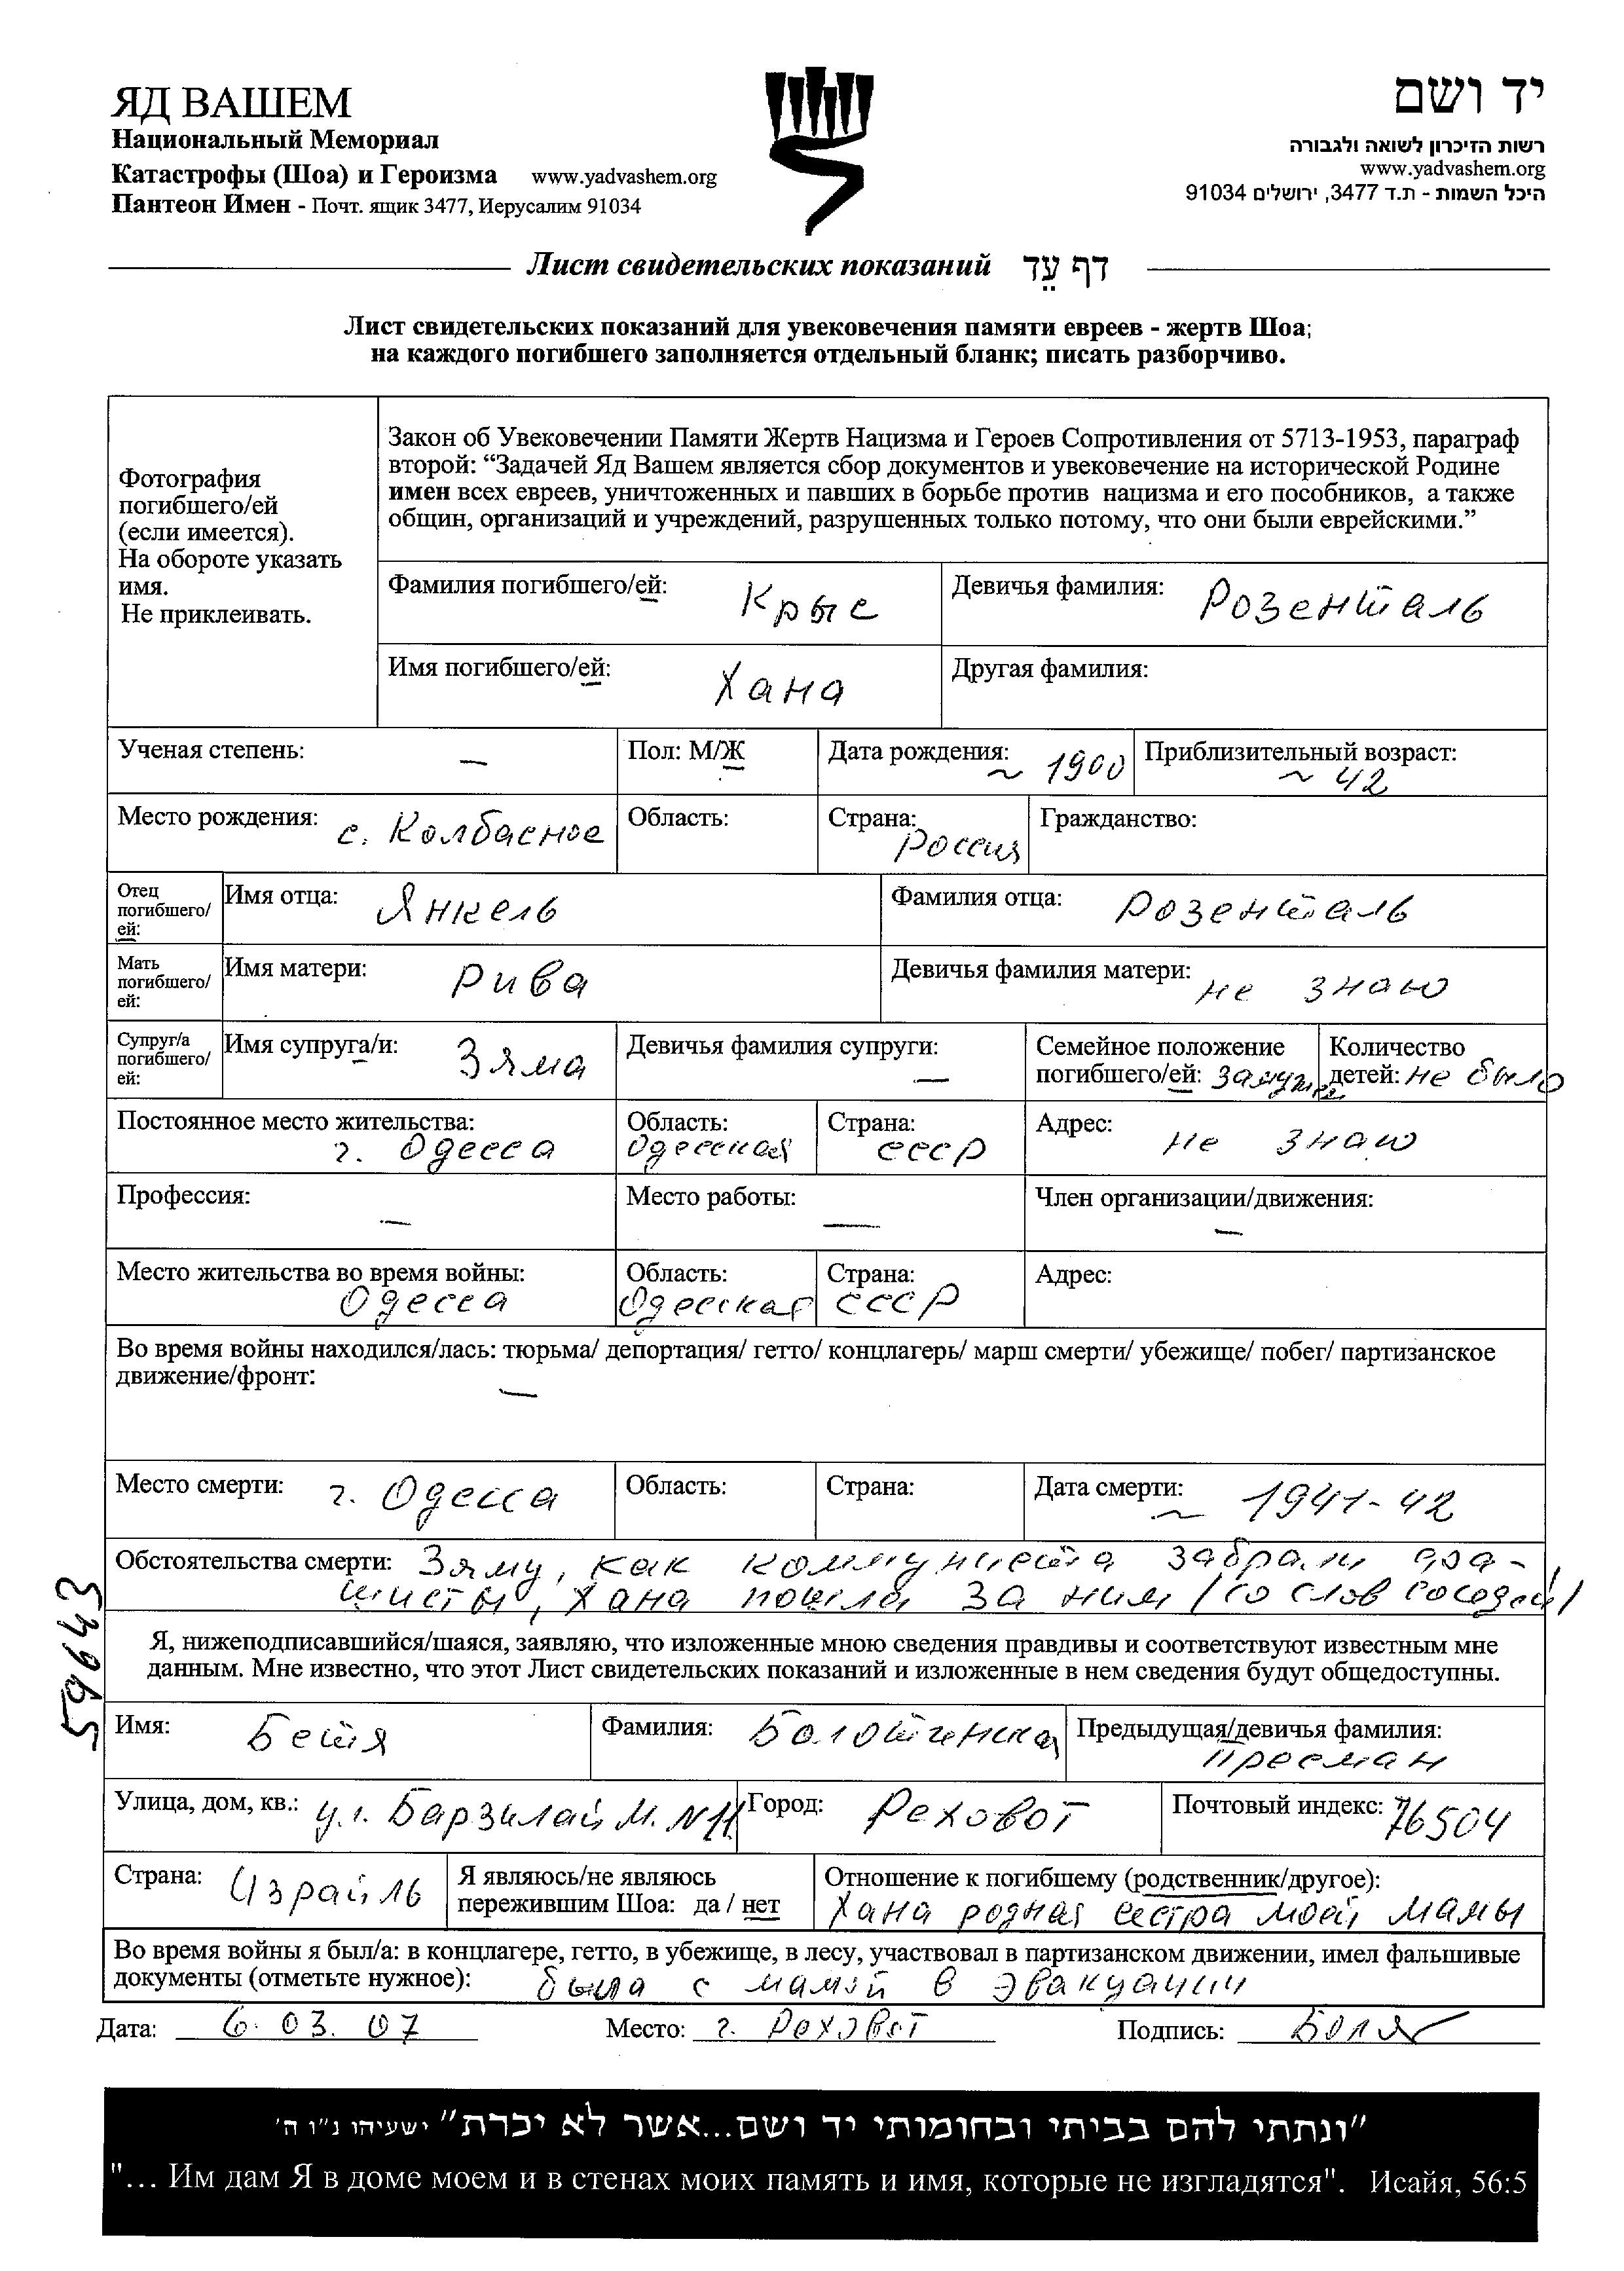 ЯД ВАШЕМ
Национальный Мемориал
Катастрофы (Шоа) и Героизма www.yadvashem.org
Пантеон Имен - Почт. ящик 3477, Иерусалим 91034
יד ושם
רשות הזיכרון לשואה ולגבורה
www.yadvashem.org
היכל השמות - ת.ד 3477, ירושלים 91034
Лист свидетельских показаний דף עֵד
Лист свидетельских показаний для увековечения памяти евреев - жертв Шоа;
на каждого погибшего заполняется отдельный бланк; писать разборчиво.
Фотография
погибшего/ей
(если имеется).
На обороте указать
имя.
Не приклеивать.
Закон об Увековечении Памяти Жертв Нацизма и Героев Сопротивления от 5713-1953, параграф
второй: “Задачей Яд Вашем является сбор документов и увековечение на исторической Родине
имен всех евреев, уничтоженных и павших в борьбе против нацизма и его пособников, а также
общин, организаций и учреждений, разрушенных только потому, что они были еврейскими.”
Фамилия погибшего/ей: Крыс
Девичья фамилия: Розенталь
Имя погибшего/ей: Хана
Другая фамилия:
Ученая степень: —
Пол: М/Ж
Дата рождения: ~ 1900
Приблизительный возраст: ~ 42
Место рождения: с. Колбасное
Область:
Страна: Россия
Гражданство:
Отец
погибшего/
ей:
Имя отца: Янкель
Фамилия отца: Розенталь
Мать
погибшего/
ей:
Имя матери: Рива
Девичья фамилия матери: не знаю
Супруг/а
погибшего/
ей:
Имя супруга/и: Зяма
Девичья фамилия супруги: —
Семейное положение
погибшего/ей: замужем
Количество
детей: не было
Постоянное место жительства: г. Одесса
Область: Одесская
Страна: СССР
Адрес: не знаю
Профессия: —
Место работы: —
Член организации/движения: —
Место жительства во время войны: Одесса
Область: Одесская
Страна: СССР
Адрес:
Во время войны находился/лась: тюрьма/ депортация/ гетто/ концлагерь/ марш смерти/ убежище/ побег/ партизанское
движение/фронт: —
Место смерти: г. Одесса
Область:
Страна:
Дата смерти: ~ 1941-42
Обстоятельства смерти: Зяму, как коммуниста забрали фа-
шисты, Хана пошла за ним (со слов соседей)
59643
Я, нижеподписавшийся/шаяся, заявляю, что изложенные мною сведения правдивы и соответствуют известным мне
данным. Мне известно, что этот Лист свидетельских показаний и изложенные в нем сведения будут общедоступны.
Имя: Бетя
Фамилия: Болотинская
Предыдущая/девичья фамилия: Пресман
Улица, дом, кв.: ул. Барзилай М. N11
Город: Реховот
Почтовый индекс: 76504
Страна: Израйль
Я являюсь/не являюсь
пережившим Шоа: да / нет
Отношение к погибшему (родственник/другое):
Хана родная сестра моей мамы
Во время войны я был/а: в концлагере, гетто, в убежище, в лесу, участвовал в партизанском движении, имел фальшивые
документы (отметьте нужное): была с мамой в эвакуации
Дата: 6.03.07 Место: г. Реховот Подпись:
"ונתתי להם בביתי ובחומותי יד ושם...אשר לא יכרת" ישעיהו נ"ו ה'
"... Им дам Я в доме моем и в стенах моих память и имя, которые не изгладятся". Исайя, 56:5